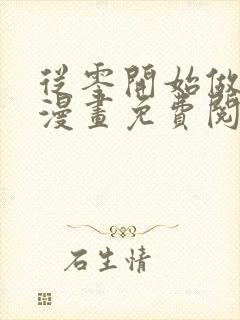 從零開始做
漫畫免費閱
石生情